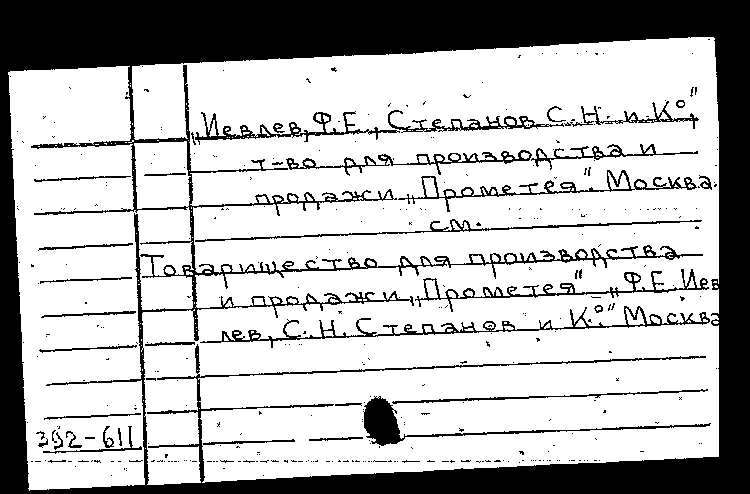 „Иевлев, Ф.Е., Степанов С.Н. и К°",
т-во для производства и
продажи „Прометея". Москва.
см.
Товарищество для производства
и продажи „Прометея" „Ф.Е. Иев
лев, С.Н. Степанов и К°." Москва
392-611